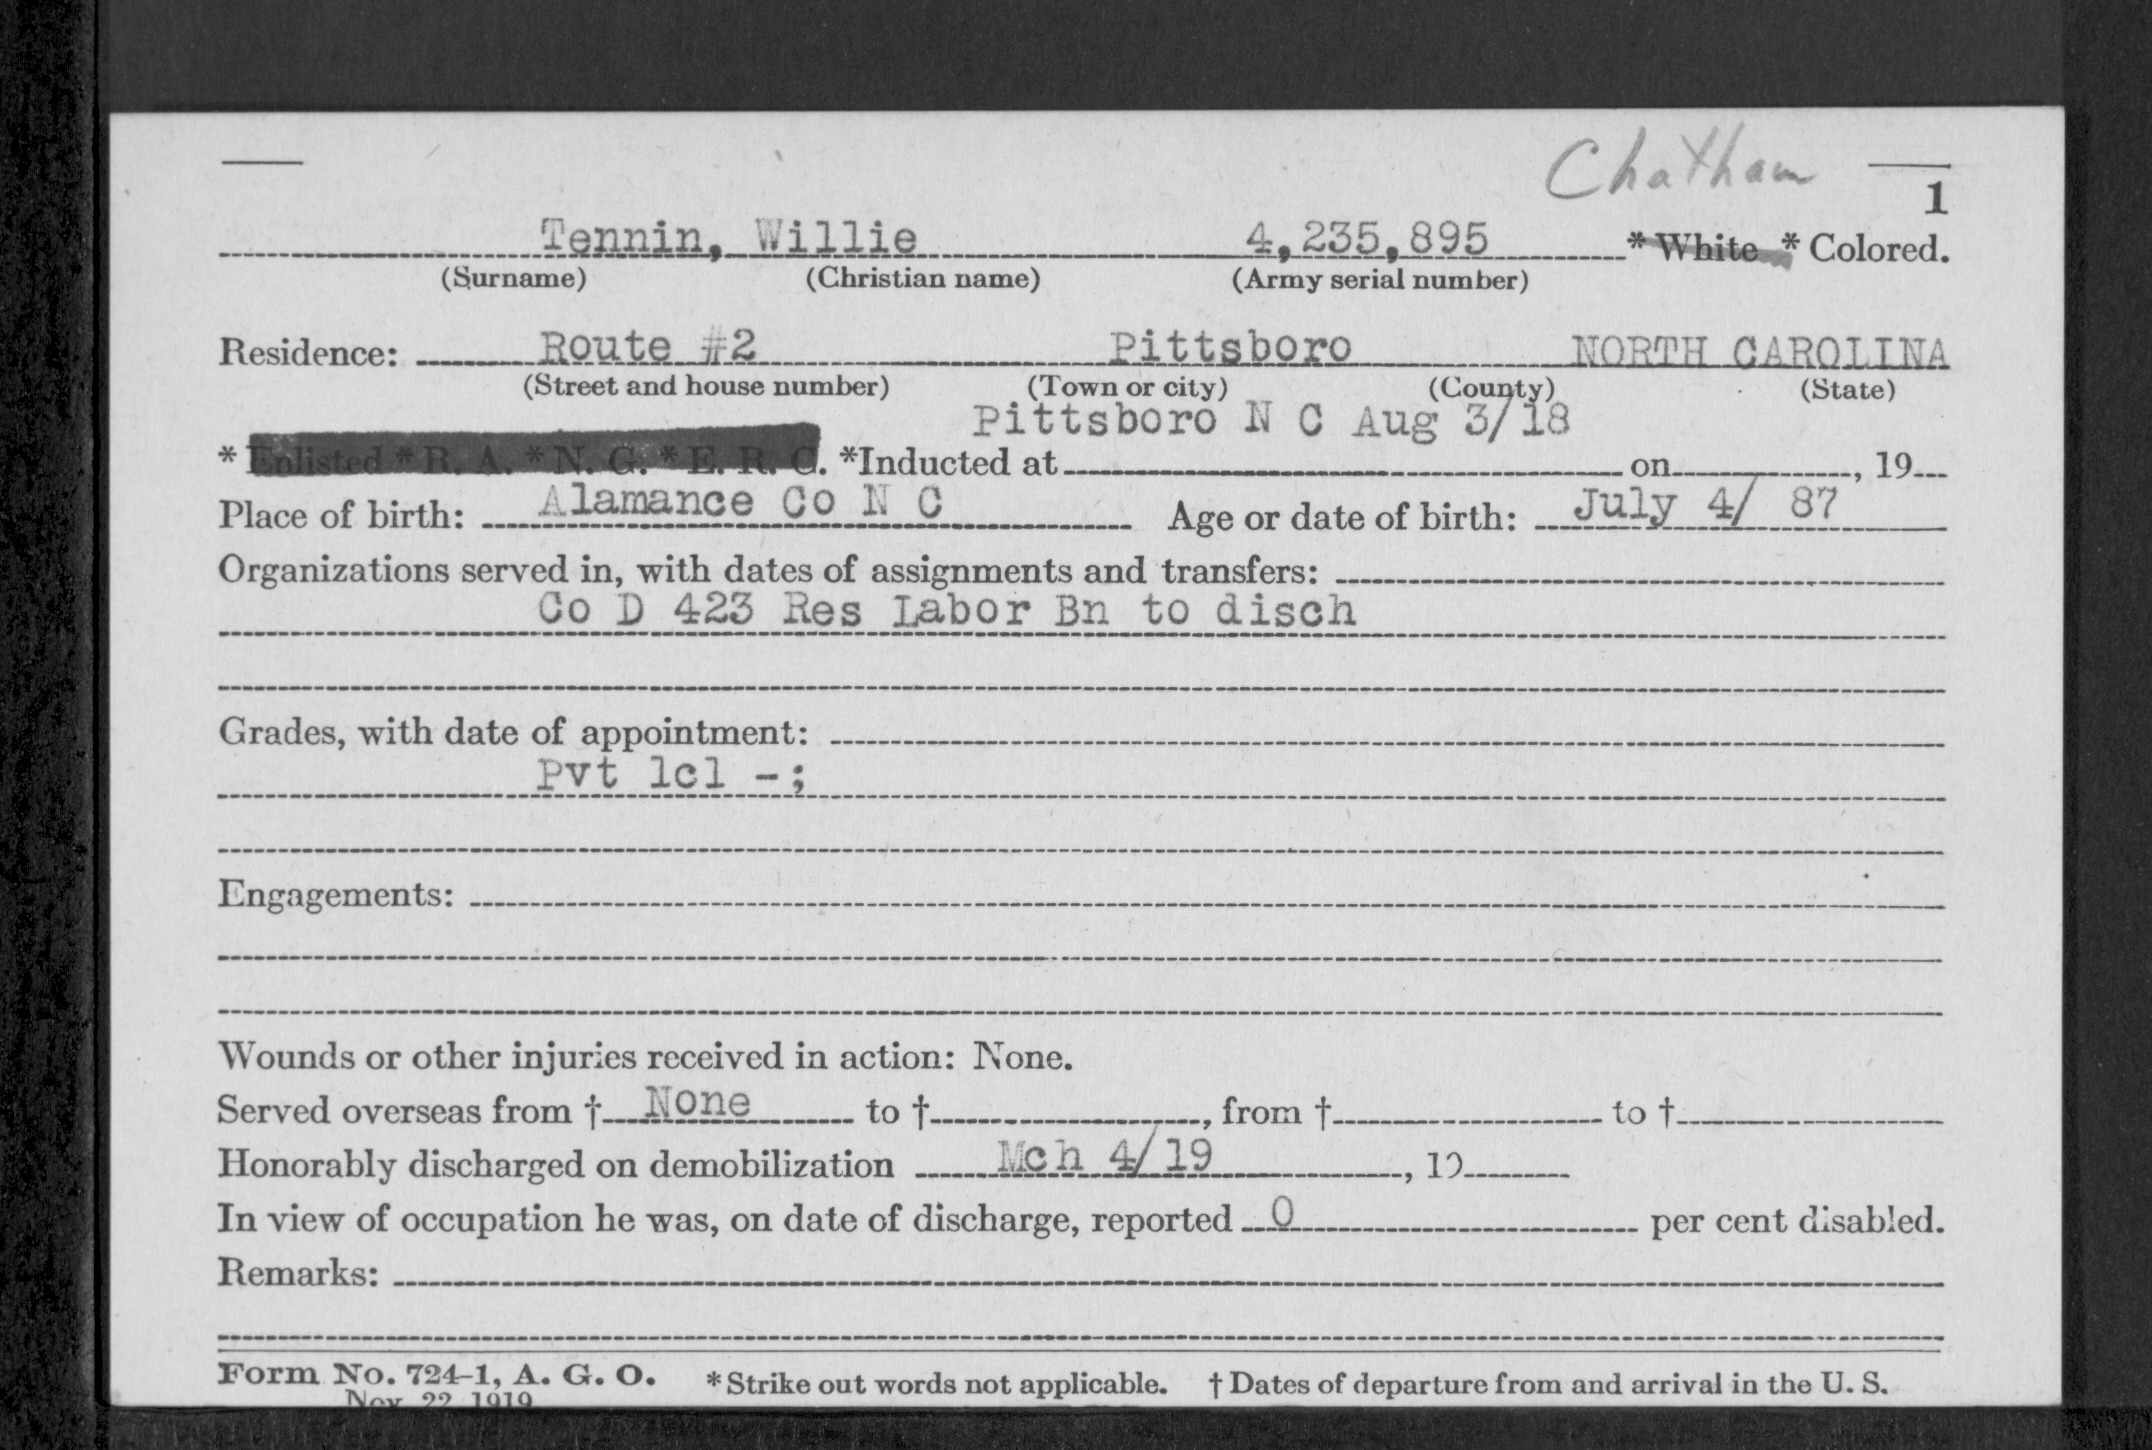 Chatham
1
Tennin, Willie 4,235,895 * White * Colored.
(Surname) (Christian name) (Army serial number)
Residence: Route #2 Pittsboro NORTH CAROLINA
(Street and house number) (Town or city) (County) (State)
Pittsboro N C Aug 3/18
* Enlisted * R. A. * N. G. * E. R. C. *Inducted at on , 19
Place of birth: Alamance Co N C Age or date of birth: July 4/ 87
Organizations served in, with dates of assignments and transfers:
Co D 423 Res Labor Bn to disch
Grades, with date of appointment:
Pvt lcl -;
Engagements:
Wounds or other injuries received in action: None.
Served overseas from † None to † , from † to †
Honorably discharged on demobilization Mch 4/19 , 19
In view of occupation he was, on date of discharge, reported 0 per cent disabled.
Remarks:
Form No. 724-1, A. G. O. *Strike out words not applicable. † Dates of departure from and arrival in the U. S.
Nov 22 1919